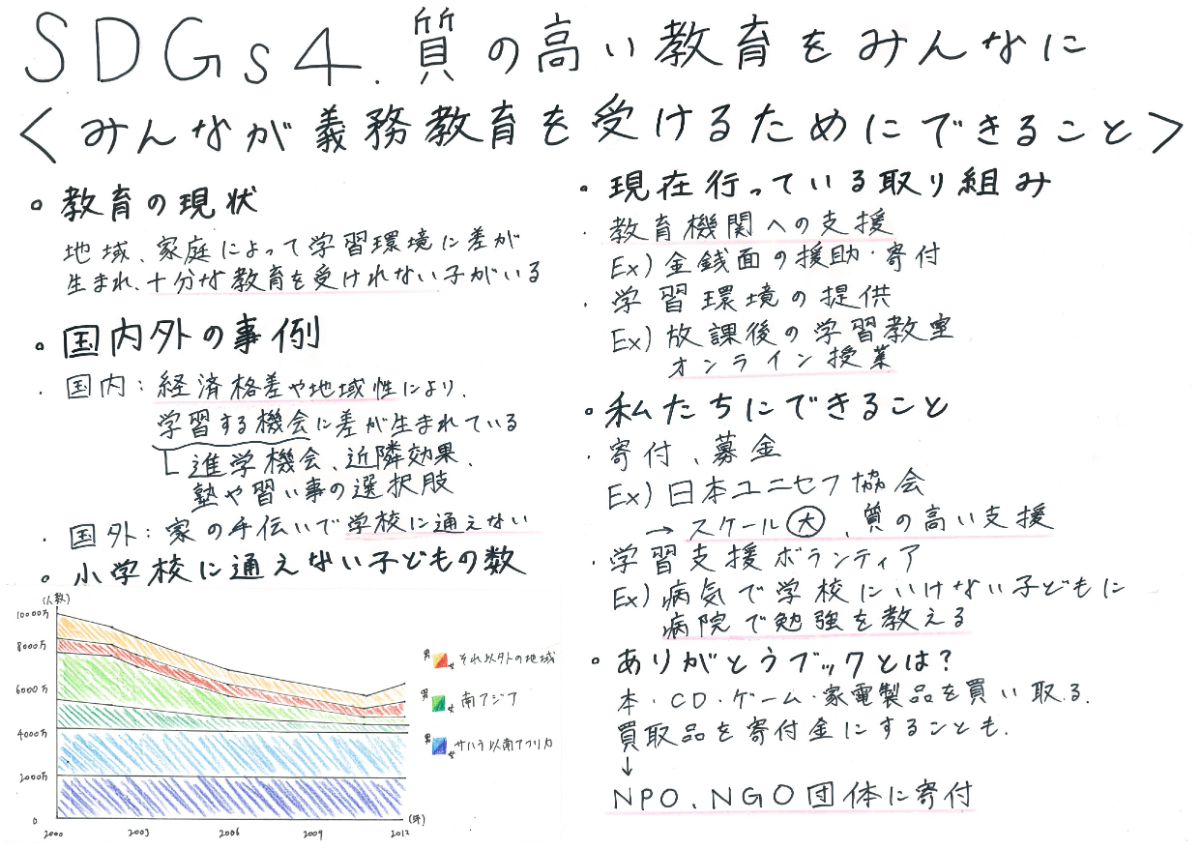 SDGs4.質の高い教育をみんなに
<みんなが義務教育を受けるためにできること>
・教育の現状
地域、家庭によって学習環境に差が
生まれ、十分な教育を受けれない子がいる
・国内外の事例
・国内:経済格差や地域性により、
学習する機会に差が生まれている
進学機会、近隣効果、
塾や習い事の選択肢
・国外:家の手伝いで学校に通えない
・小学校に通えない子どもの数
(人数)
10000万
8000万
6000万
4000万
2000万
0
2000 2003 2006 2009 2012 (年)
男 女 それ以外の地域
男 女 南アジア
男 女 サハラ以南アフリカ
・現在行っている取り組み
・教育機関への支援
Ex)金銭面の援助・寄付
・学習環境の提供
Ex)放課後の学習教室
オンライン授業
・私たちにできること
・寄付、募金
Ex)日本ユニセフ協会
→スケール大、質の高い支援
・学習支援ボランティア
Ex)病気で学校にいけない子どもに
病院で勉強を教える
・ありがとうブックとは?
本・CD・ゲーム・家電製品を買い取る.
買取品を寄付金にすることも.
↓
NPO、NGO団体に寄付